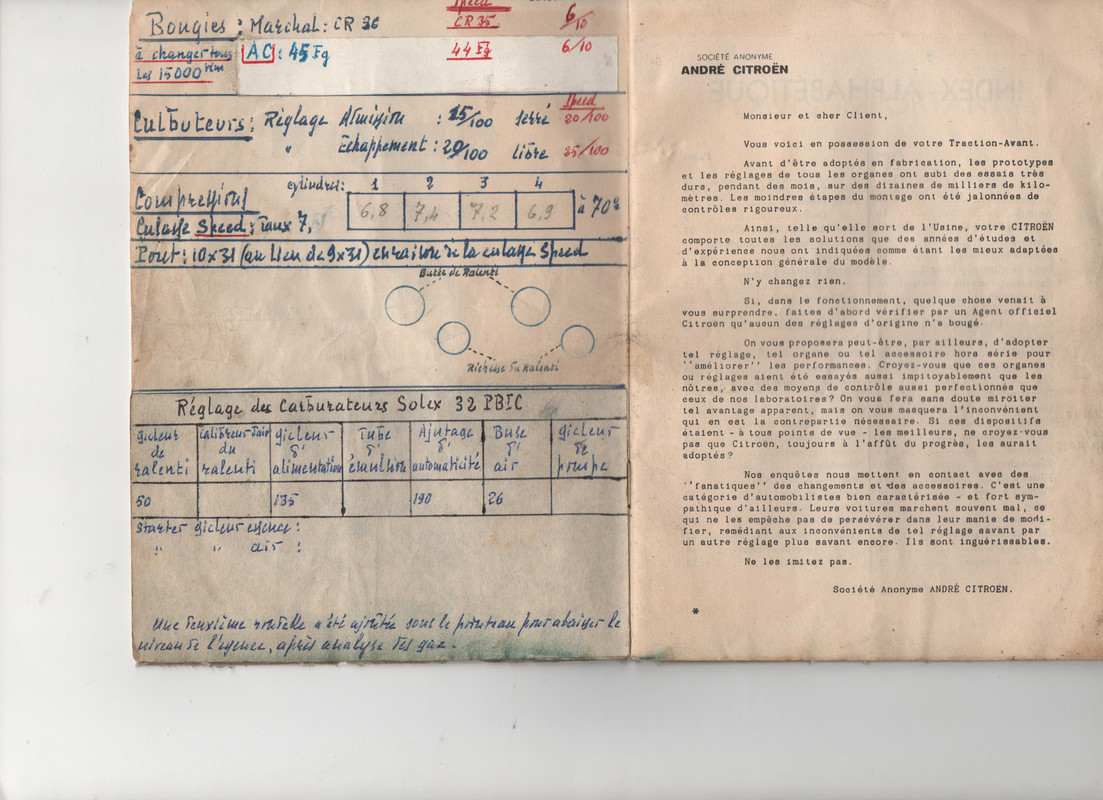 Speed
Bougies : Marchal : CR 36 CR 35 6/10
à changer tous AC : 45 Fg 44 Fg 6/10
les 15000 Km
Speed
Culbuteurs : Réglage Admission : 15/100 serré 20/100
" Echappement : 20/100 libre 25/100
cylindres : 1 2 3 4
Compressions 6,8 7,4 7,2 6,9 à 70°
Culasse Speed : taux 7,
Pont : 10x31 (au lieu de 9x31) en raison de la culasse Speed
Buses de Ralenti
Richesse du Ralenti
Réglage des Carburateurs Solex 32 PBIC
gicleur de ralenti calibreur d'air du ralenti gicleur d'alimentation Tube d'émulsion Ajutage d'automaticité Buse d'air gicleur de pompe
50 135 190 26
Starter gicleur essence :
" " air :
Une deuxième rondelle a été ajoutée sous le pointeau pour abaisser le
niveau de l'essence, après analyse des gaz.
SOCIÉTÉ ANONYME
ANDRÉ CITROËN
Monsieur et cher Client,
Vous voici en possession de votre Traction-Avant.
Avant d'être adoptés en fabrication, les prototypes
et les réglages de tous les organes ont subi des essais très
durs, pendant des mois, sur des dizaines de milliers de kilo-
mètres. Les moindres étapes du montage ont été jalonnées de
contrôles rigoureux.
Ainsi, telle qu'elle sort de l'Usine, votre CITROËN
comporte toutes les solutions que des années d'études et
d'expérience nous ont indiquées comme étant les mieux adaptées
à la conception générale du modèle.
N'y changez rien.
Si, dans le fonctionnement, quelque chose venait à
vous surprendre, faites d'abord vérifier par un Agent officiel
Citroën qu'aucun des réglages d'origine n'a bougé.
On vous proposera peut-être, par ailleurs, d'adopter
tel réglage, tel organe ou tel accessoire hors série pour
''améliorer'' les performances. Croyez-vous que ces organes
ou réglages aient été essayés aussi impitoyablement que les
nôtres, avec des moyens de contrôle aussi perfectionnés que
ceux de nos laboratoires? On vous fera sans doute miroiter
tel avantage apparent, mais on vous masquera l'inconvénient
qui en est la contrepartie nécessaire. Si ces dispositifs
étaient - à tous points de vue - les meilleurs, ne croyez-vous
pas que Citroën, toujours à l'affût du progrès, les aurait
adoptés?
Nos enquêtes nous mettent en contact avec des
''fanatiques'' des changements et des accessoires. C'est une
catégorie d'automobilistes bien caractérisée - et fort sym-
pathique d'ailleurs. Leurs voitures marchent souvent mal, ce
qui ne les empêche pas de persévérer dans leur manie de modi-
fier, remédiant aux inconvénients de tel réglage savant par
un autre réglage plus savant encore. Ils sont inguérissables.
Ne les imitez pas.
Société Anonyme ANDRÉ CITROEN.
*